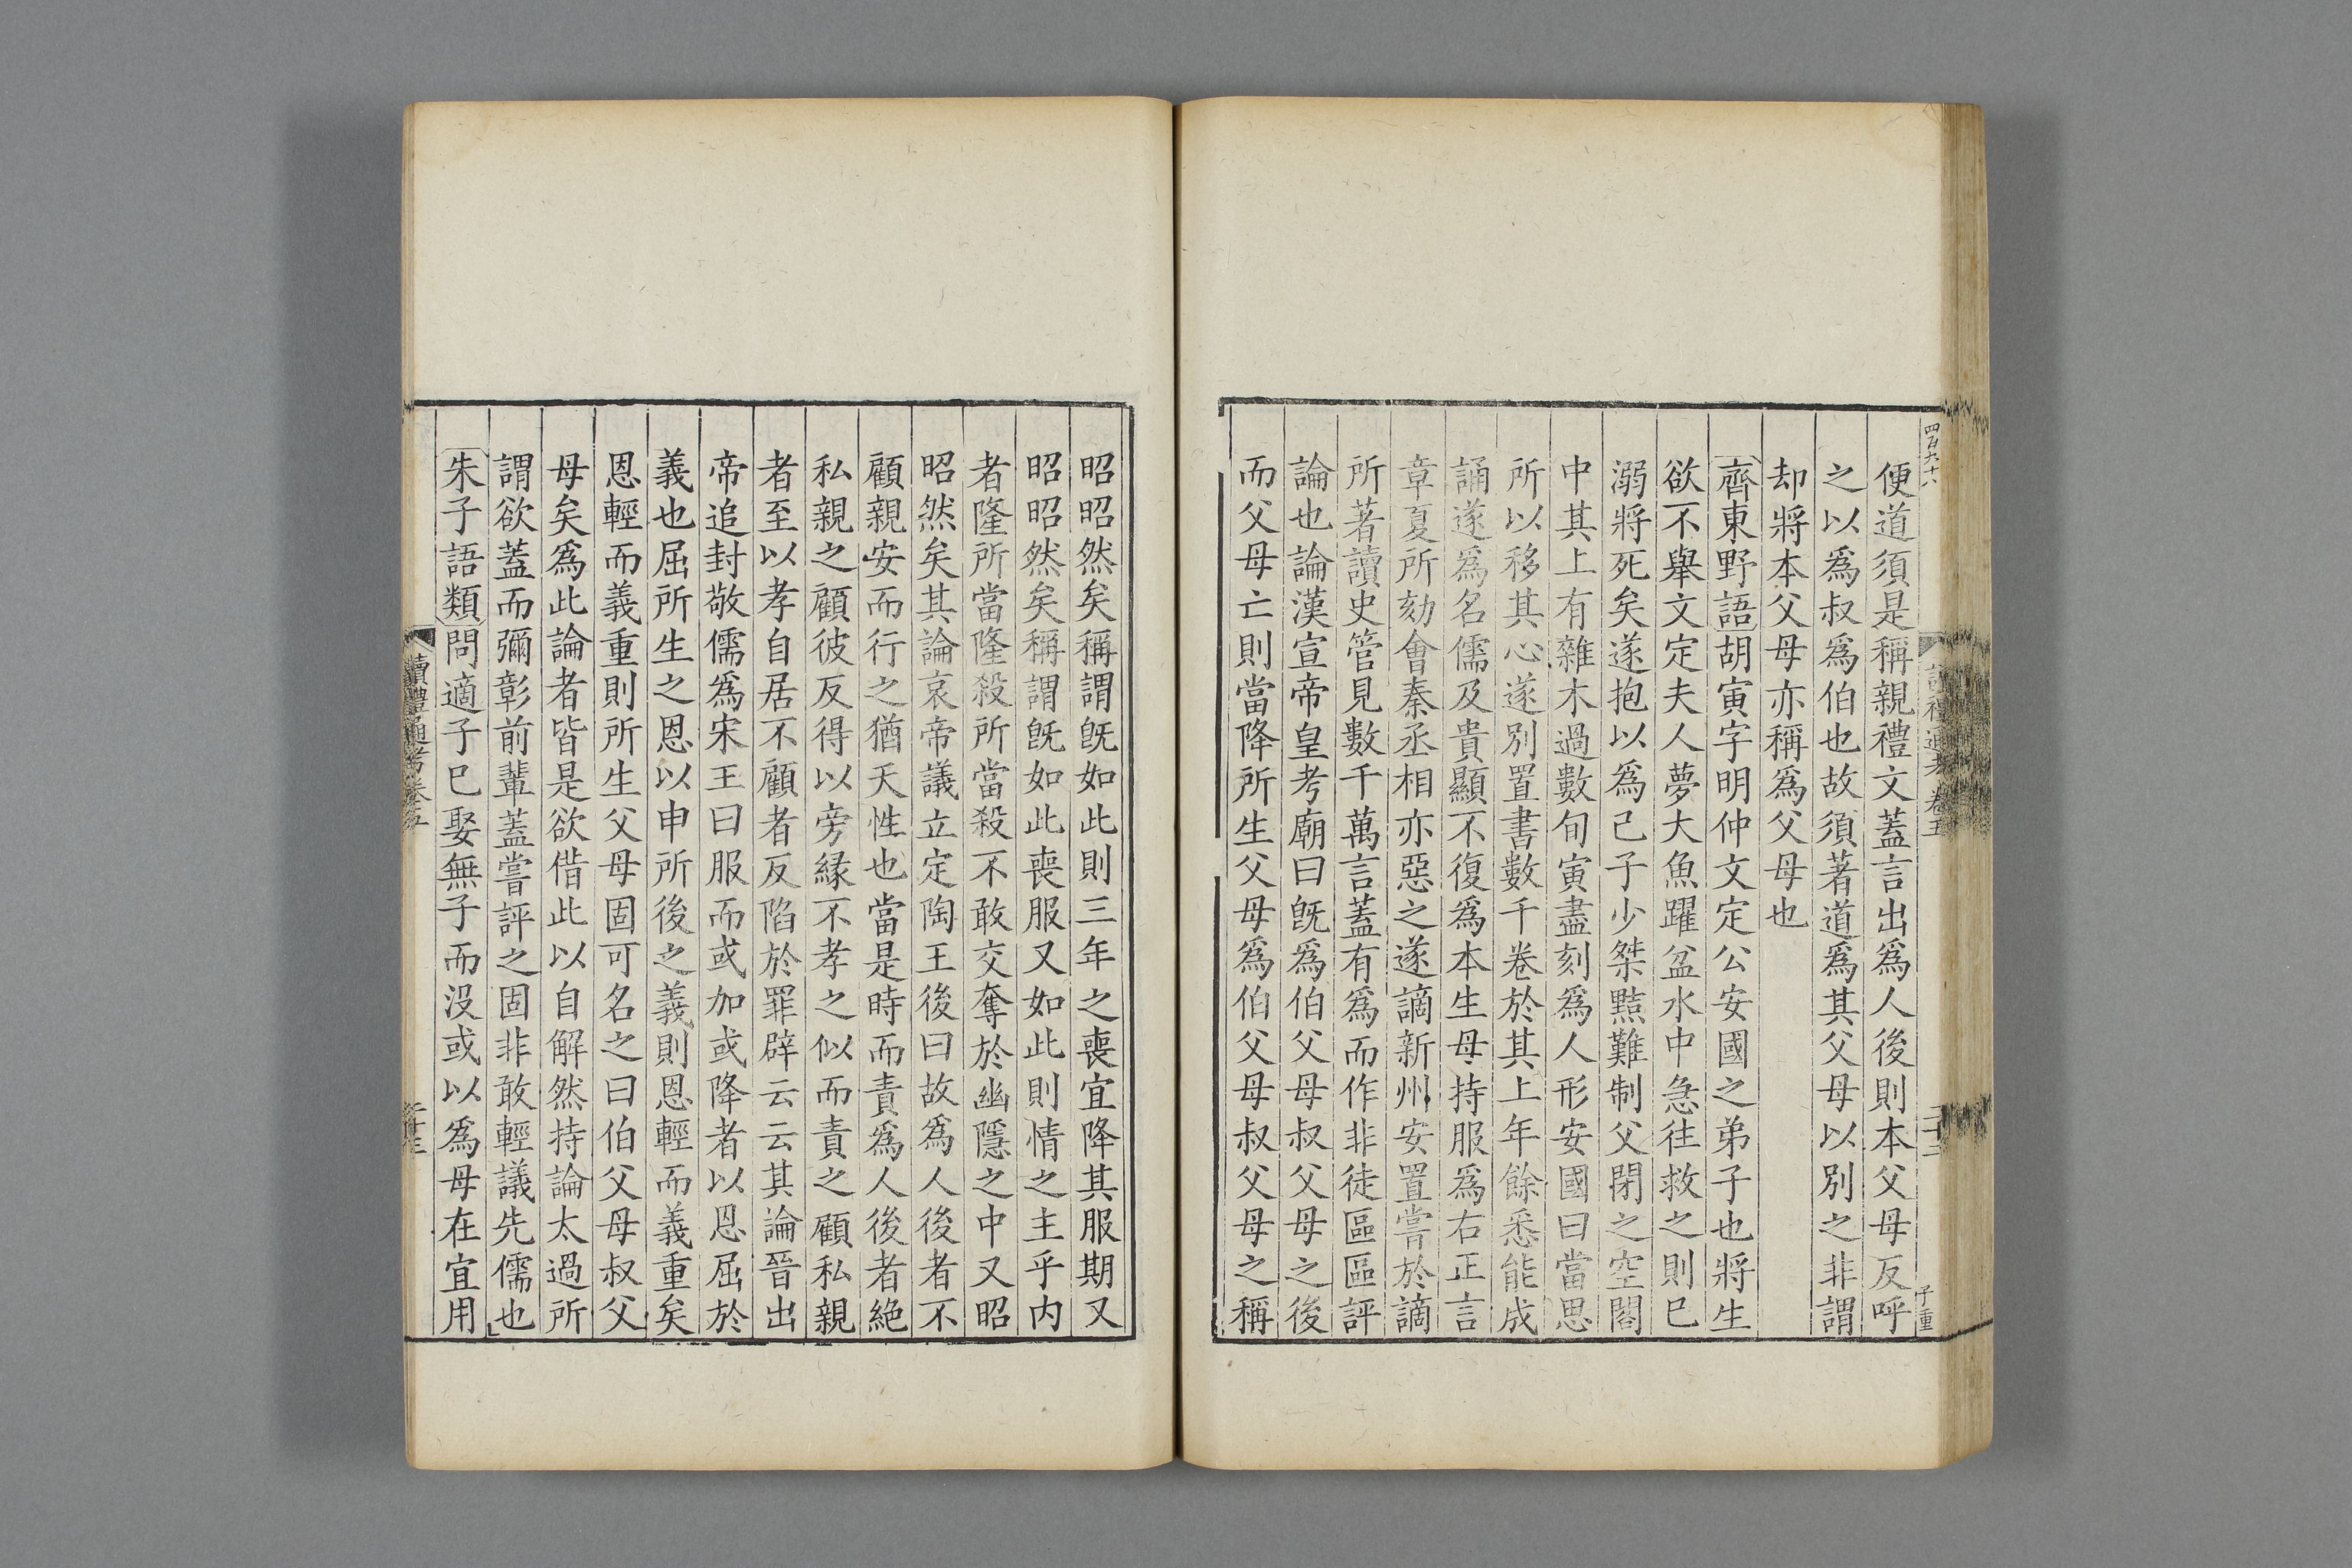 四百九十八
讀禮通考 卷五
二十二
子重
便道須是稱親禮文蓋言出爲人後則本父母反呼
之以爲叔爲伯也故須著道爲其父母以別之非謂
却將本父母亦稱爲父母也
齊東野語胡寅字明仲文定公安國之弟子也將生
欲不舉文定夫人夢大魚躍盆水中急往救之則已
溺將死矣遂抱以爲己子少桀黠難制父閉之空閣
中其上有雜木過數旬寅盡刻爲人形安國曰當思
所以移其心遂別置書數千卷於其上年餘悉能成
誦遂爲名儒及貴顯不復爲本生母持服爲右正言
章夏所劾會秦丞相亦惡之遂謫新州安置嘗於謫
所著讀史管見數千萬言蓋有爲而作非徒區區評
論也論漢宣帝皇考廟曰旣爲伯父母叔父母之後
而父母亡則當降所生父母爲伯父母叔父母之稱
昭昭然矣稱謂旣如此則三年之喪宜降其服期又
昭昭然矣稱謂旣如此喪服又如此則情之主乎内
者隆所當隆殺所當殺不敢交奪於幽隱之中又昭
昭然矣其論哀帝議立定陶王後曰故爲人後者不
顧親安而行之猶天性也當是時而責爲人後者絶
私親之顧彼反得以旁緣不孝之似而責之顧私親
者至以孝自居不顧者反陷於罪辟云云其論晉出
帝追封敬儒爲宋王曰服而或加或降者以恩屈於
義也屈所生之恩以申所後之義則恩輕而義重矣
恩輕而義重則所生父母固可名之曰伯父母叔父
母矣爲此論者皆是欲借此以自解然持論太過所
謂欲蓋而彌彰前輩蓋嘗評之固非敢輕議先儒也
朱子語類問適子已娶無子而没或以爲母在宜用
讀禮通考卷五